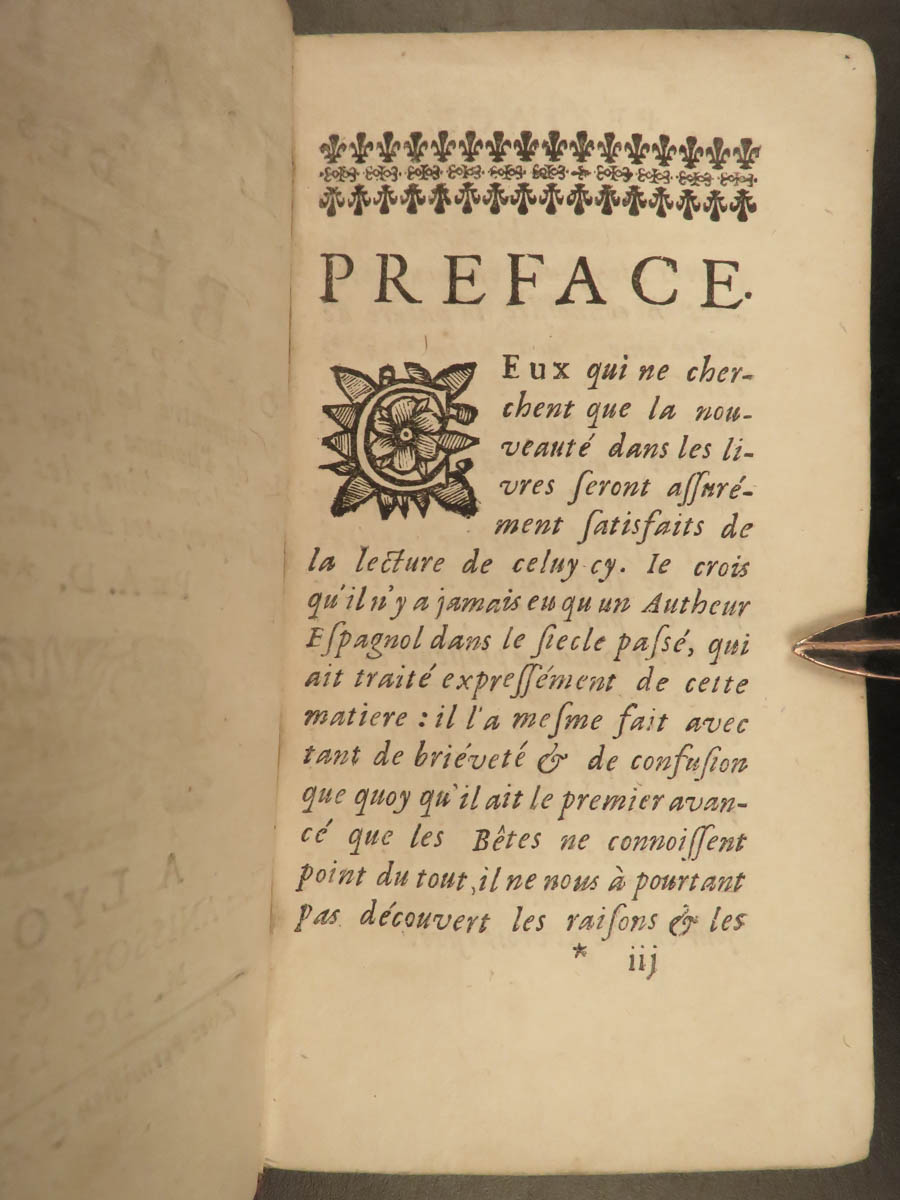 PREFACE.
CEux qui ne cher-
chent que la nou-
veauté dans les li-
vres ſeront aſſuré-
ment ſatisfaits de
la lecture de celuy-cy. Ie crois
qu'il n'y a jamais eu qu un Autheur
Eſpagnol dans le ſiecle paſsé, qui
ait traité expreſſément de cette
matiere : il l'a meſme fait avec
tant de briéveté & de confuſion
que quoy qu'il ait le premier avan-
cé que les Bêtes ne connoiſſent
point du tout, il ne nous à pourtant
pas découvert les raiſons & les
* iij